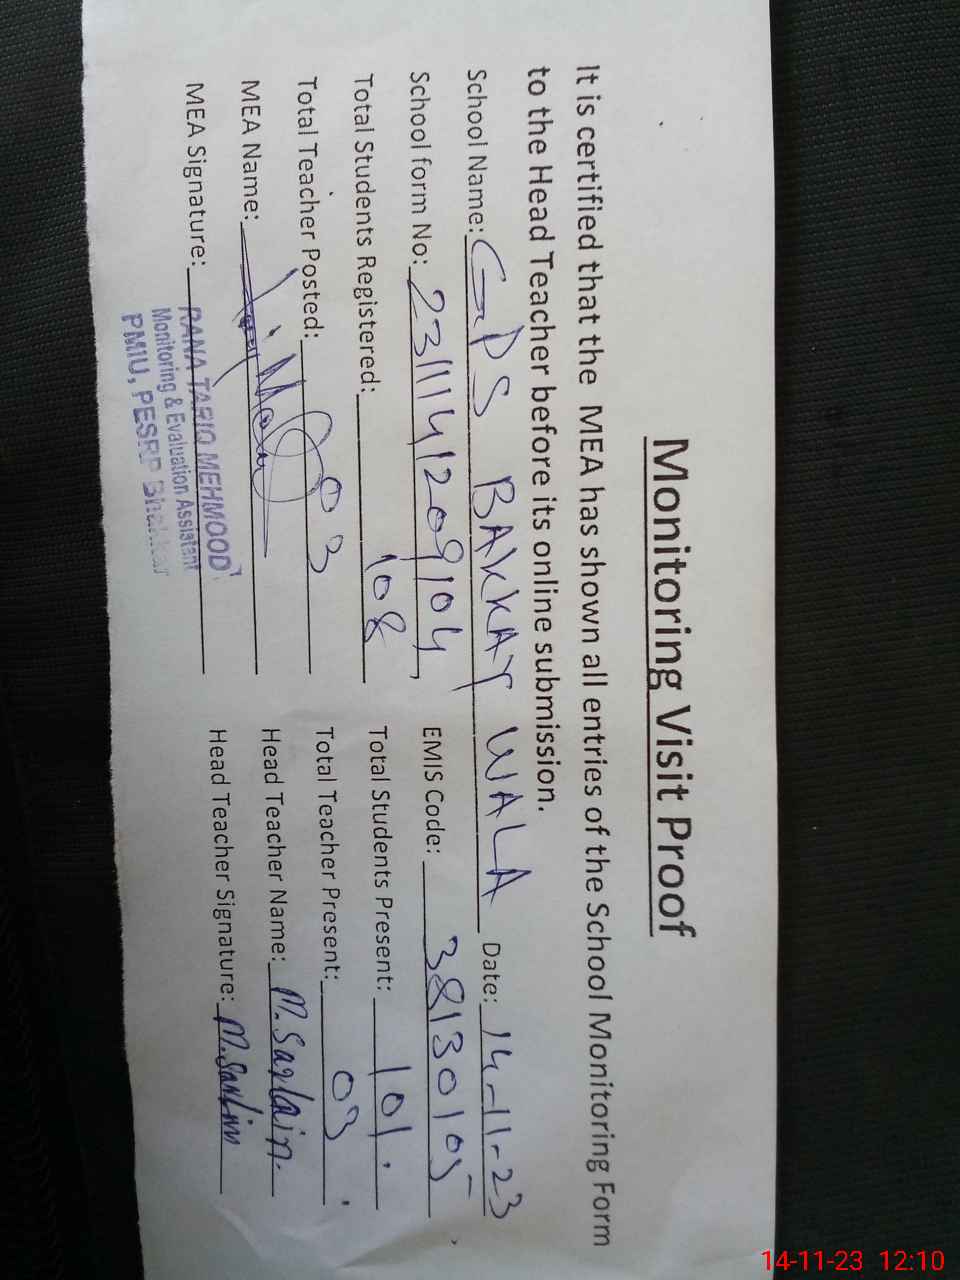 Monitoring Visit Proof
It is certified that the MEA has shown all entries of the School Monitoring Form
to the Head Teacher before its online submission.
School Name: GPS BAKKAY WALA Date: 14-11-23
School form No: 2311141209104 EMIS Code: 38130105
Total Students Registered: 108 Total Students Present: 101.
Total Teacher Posted: 03 Total Teacher Present: 03
MEA Name: Head Teacher Name: M. Saqlain.
MEA Signature: Head Teacher Signature: M. Saqlain
RANA TARIQ MEHMOOD
Monitoring & Evaluation Assistant
PMIU, PESRP Bhakkar
14-11-23 12:10